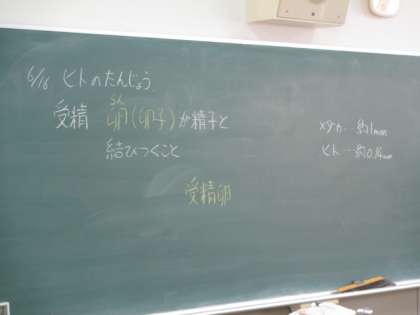 6/16 ヒトのたんじょう
受精 卵(卵子)が精子と
結びつくこと
受精卵
メダカ… 約1mm
ヒト…約0.14mm